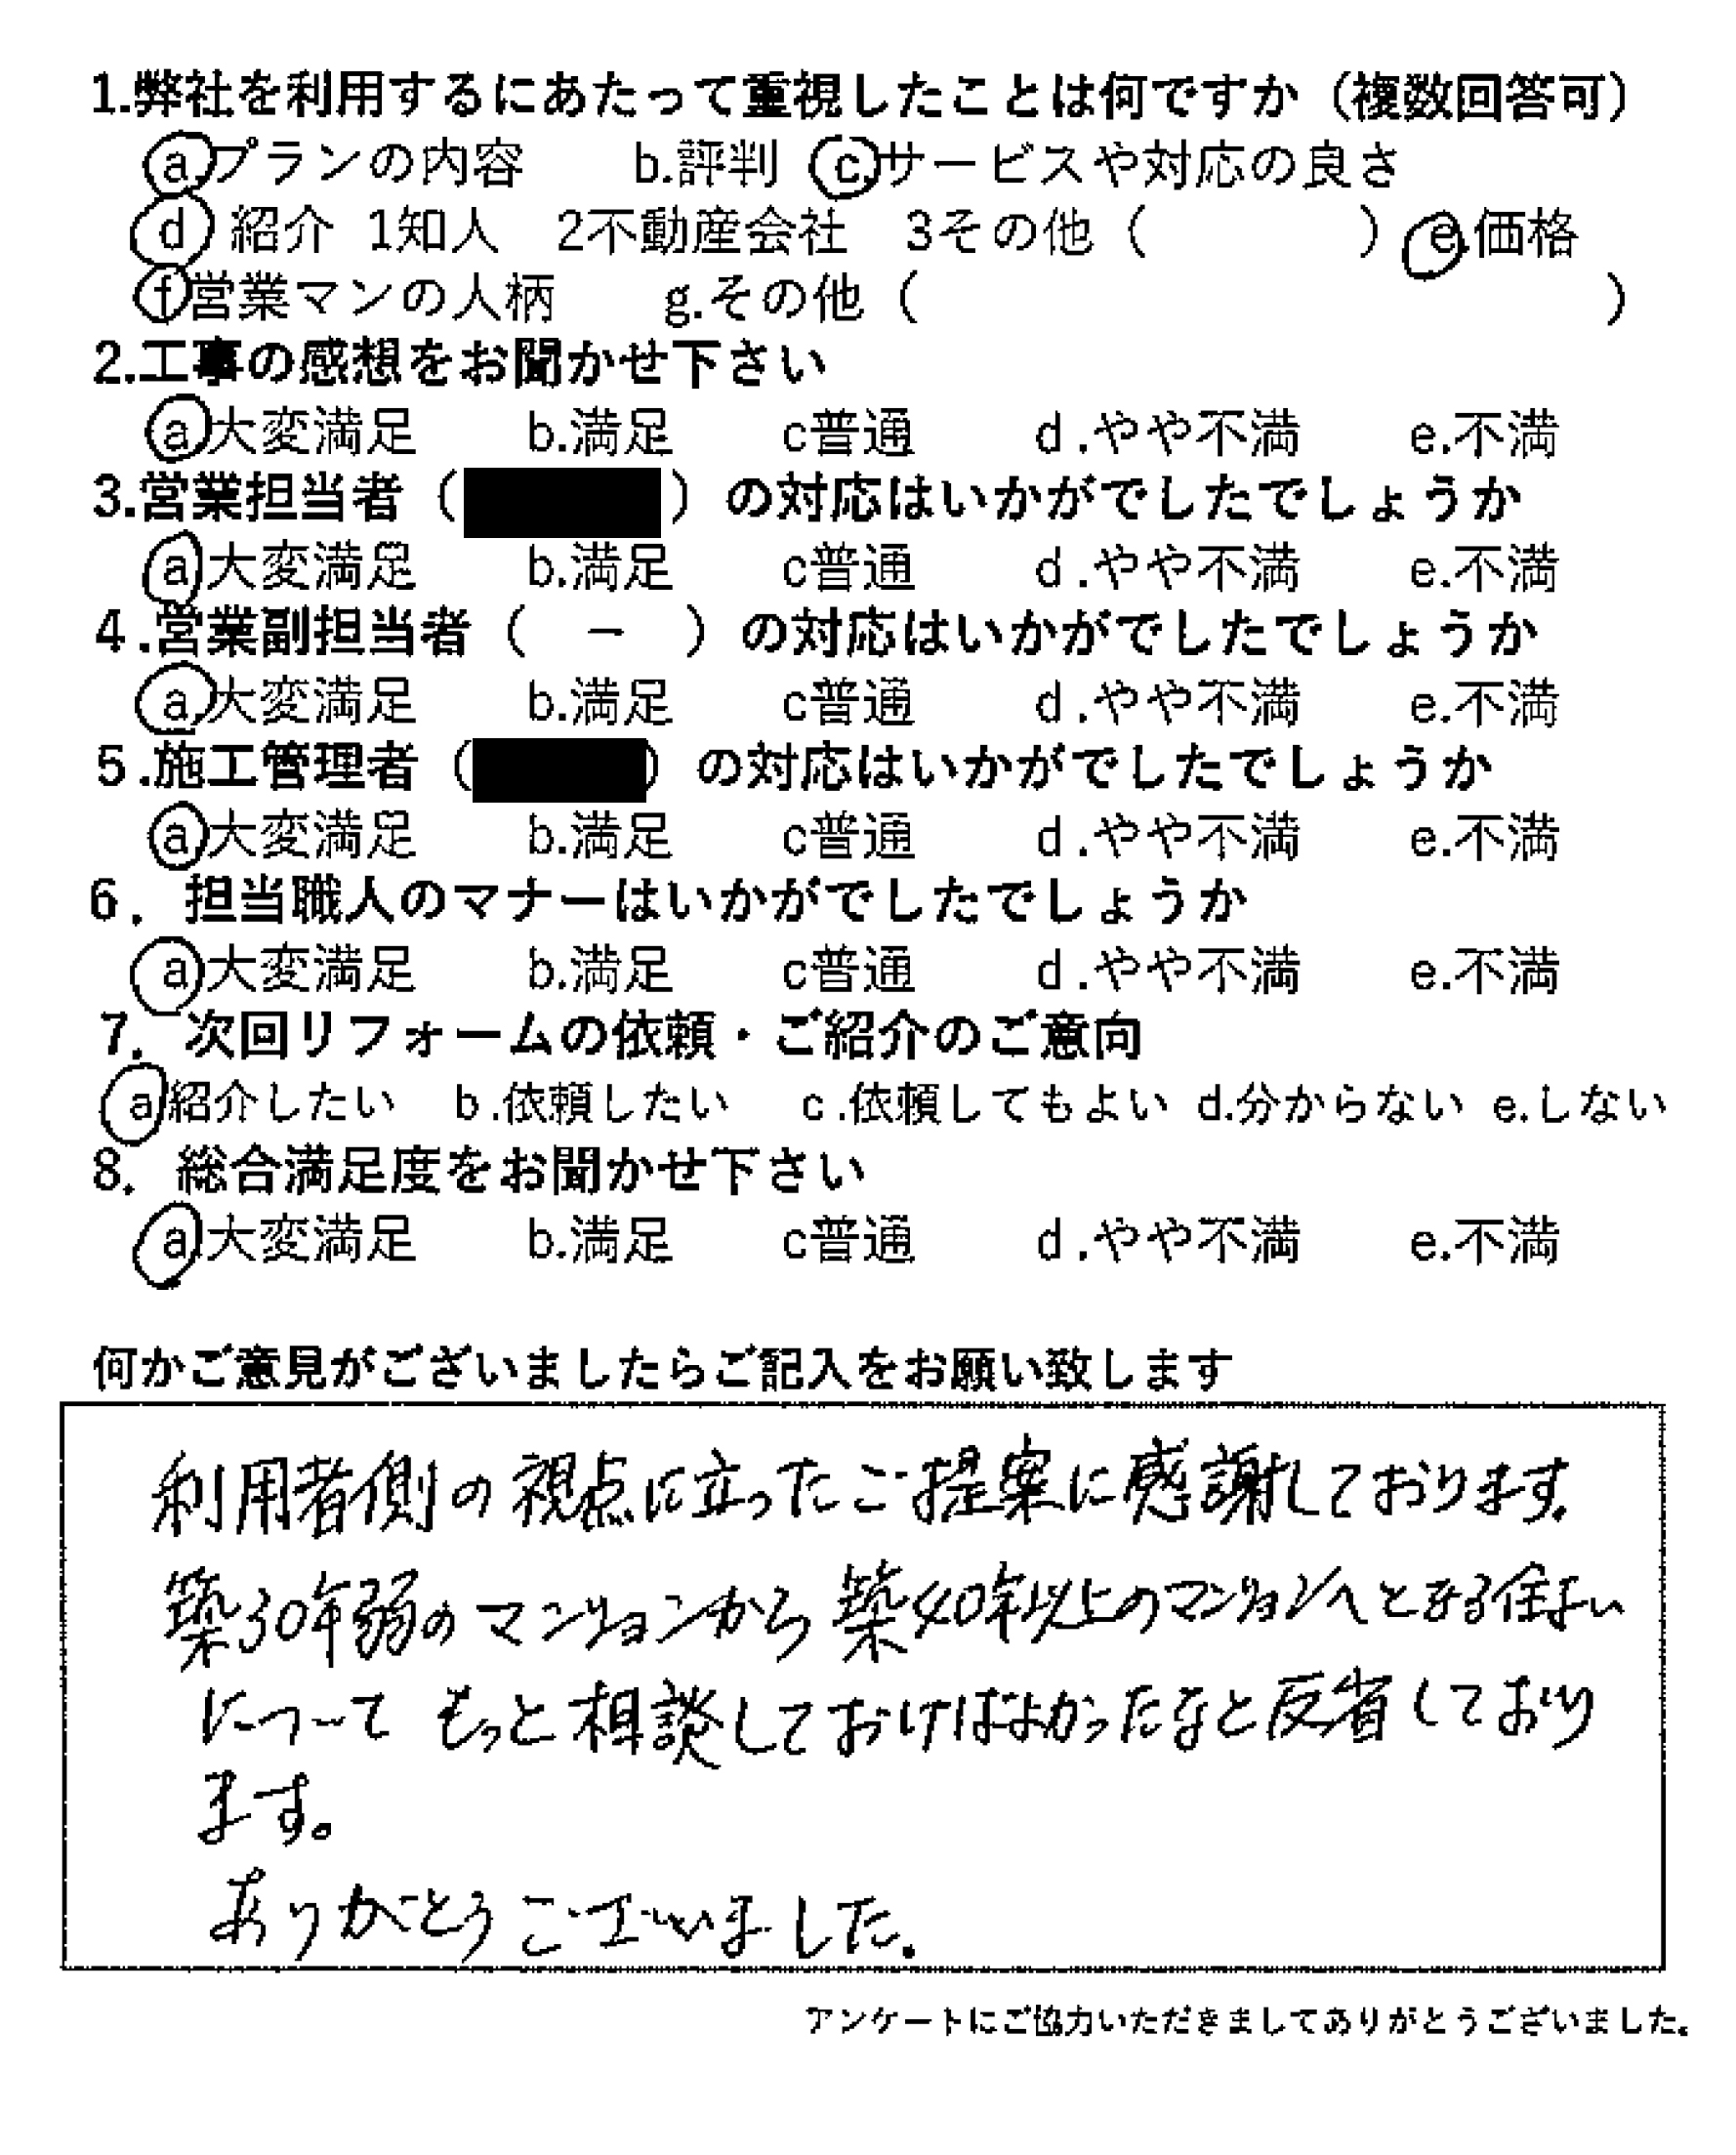 1.弊社を利用するにあたって重視したことは何ですか（複数回答可）
a.プランの内容 b.評判 c.サービスや対応の良さ
d 紹介 1知人 2不動産会社 3その他（ ） e.価格
f営業マンの人柄 g.その他（ ）
2.工事の感想をお聞かせ下さい
a大変満足 b.満足 c普通 d.やや不満 e.不満
3.営業担当者（ ）の対応はいかがでしたでしょうか
a大変満足 b.満足 c普通 d.やや不満 e.不満
4.営業副担当者（ － ）の対応はいかがでしたでしょうか
a.大変満足 b.満足 c普通 d.やや不満 e.不満
5.施工管理者（ ）の対応はいかがでしたでしょうか
a大変満足 b.満足 c普通 d.やや不満 e.不満
6．担当職人のマナーはいかがでしたでしょうか
a大変満足 b.満足 c普通 d.やや不満 e.不満
7．次回リフォームの依頼・ご紹介のご意向
a紹介したい b.依頼したい c.依頼してもよい d.分からない e.しない
8．総合満足度をお聞かせ下さい
a大変満足 b.満足 c普通 d.やや不満 e.不満
何かご意見がございましたらご記入をお願い致します
利用者側の視点に立ったご提案に感謝しております。
築30年弱のマンションから築40年以上のマンションへとなる住まい
についてもっと相談しておけばよかったなと反省しており
ます。
ありがとうございました。
アンケートにご協力いただきましてありがとうございました。